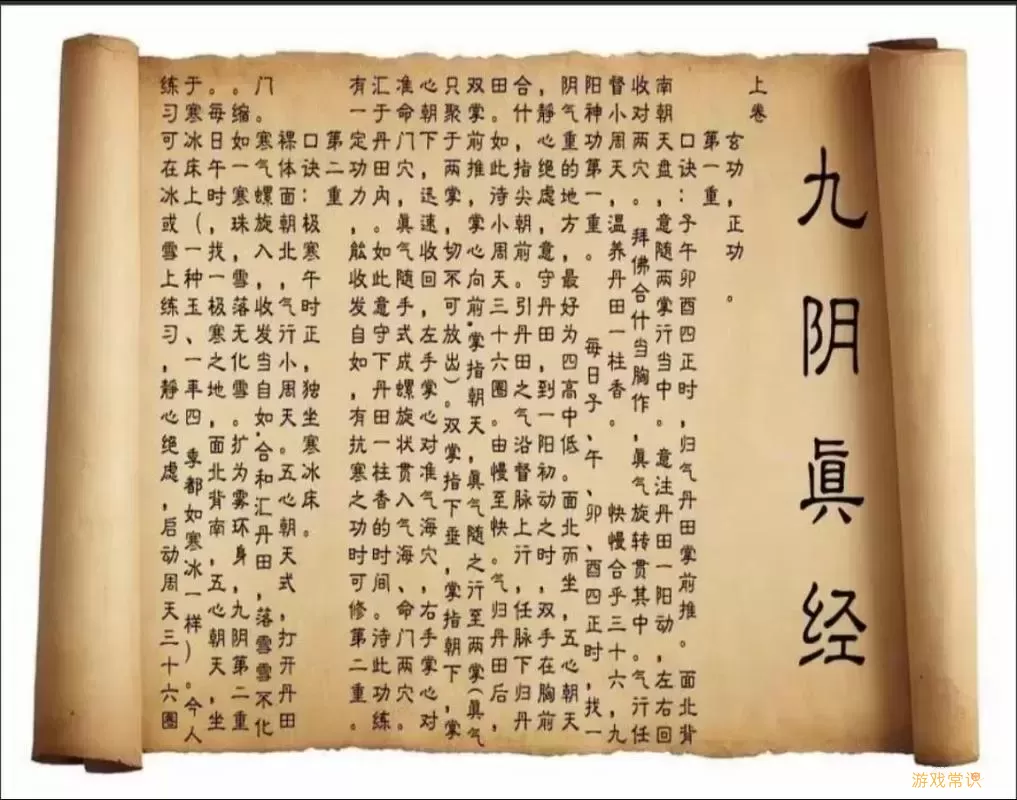 九阴眞经
上卷
玄功，正功。
第一重
口诀：子午卯酉四正时，归气丹田掌前推。面北背
南朝天盘，意随两掌行当中。意注丹田一阳动，左右回
收对两穴。拜佛合什当胸作，眞气旋转贯其中。气行任
督小周天，温养丹田一柱香。快慢合乎三十六，九
阳神功第一重。每日子、午、卯、酉四正时，找一
阴气重的地方，最好为四高中低。面北而坐，五心朝天
，静心绝虑，意守丹田，到一阳初动之时，双手在胸前
合什，指尖朝前。引丹田之气沿督脉上行，任脉下归丹
田。如此诗小周天三十六圈。由慢至快。气归丹田后，
双掌前推，掌心向前，掌指朝天，眞气随之行至两掌（眞气
只聚于两掌，切不可放出）双掌指下垂，掌指朝下，掌
心朝下，迅速收回，左手掌心对准气海穴，右手掌心对
准命门穴，眞气随手式成螺旋状贯入气海、命门两穴。
汇于丹田内。如此意守下丹田一柱香的时间。诗此功练
有一定功力，能收发自如，有抗寒之功时可修第二重。
第二重
口诀：极寒午时正，独坐寒冰床。
裸体面朝北，气行小周天。五心朝天式，打开丹田
门寒气螺旋入，收发当自如。合和汇丹田，落雪雪不化
。缩如一寒珠，雪落无化雪。扩为雾环身，九阴第二重
。每日午时，找一极寒之地，面北背南，五心朝天，坐
于寒冰床上（一种玉、一年四季都如寒冰一样）。今人
练习可在冰或雪上练习，静心绝虑，启动周天三十六圈
游戏常识